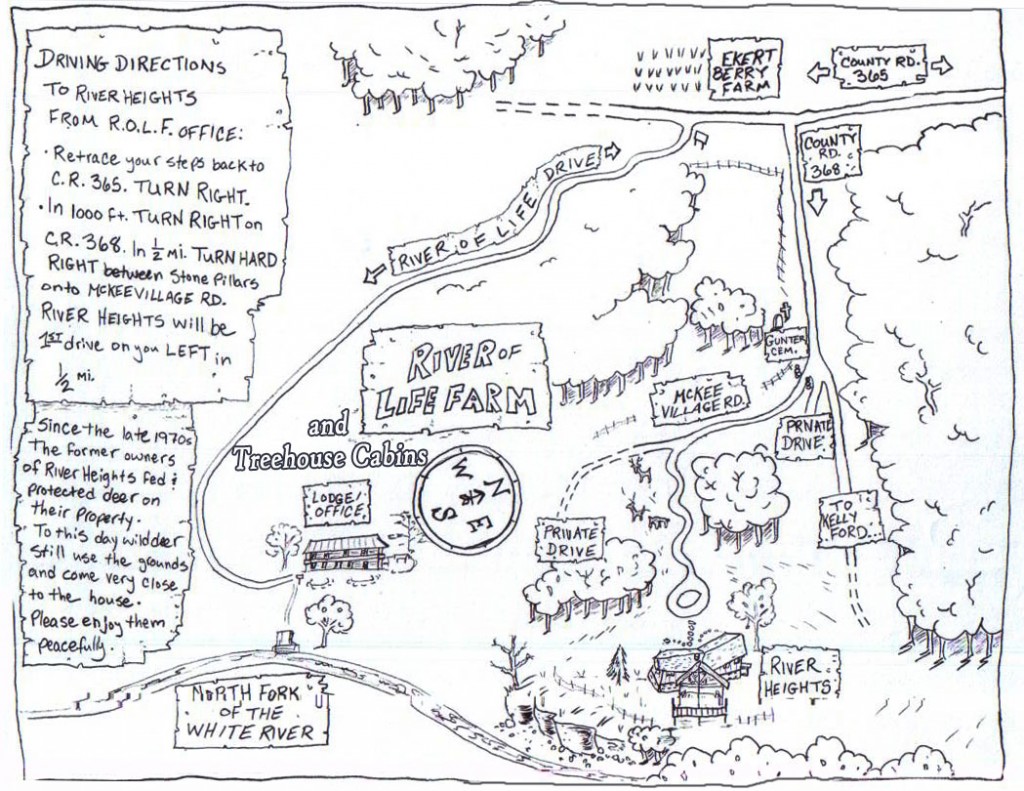 DRIVING DIRECTIONS
TO RIVER HEIGHTS
FROM R.O.L.F. OFFICE:
• Retrace your steps back to
C.R. 365. TURN RIGHT.
• In 1000 ft. TURN RIGHT on
C.R. 368. In ½ mi. TURN HARD
RIGHT between Stone Pillars
onto MCKEE VILLAGE RD.
RIVER HEIGHTS will be
1ST drive on you LEFT in
½ mi.
Since the late 1970s
The former owners
of River Heights Fed &
protected deer on
their Property.
To this day wild deer
still use the grounds
and come very close
to the house.
Please enjoy them
peacefully.
EKERT
BERRY
FARM
COUNTY RD.
365
COUNTY
RD.
368
RIVER OF LIFE DRIVE
RIVER OF
LIFE FARM
and
Treehouse Cabins
GUNTER
CEM.
MCKEE
VILLAGE RD.
PRIVATE
DRIVE
LODGE/
OFFICE
N
E
S
W
PRIVATE
DRIVE
TO
KELLY
FORD
RIVER
HEIGHTS
NORTH FORK
OF THE
WHITE RIVER